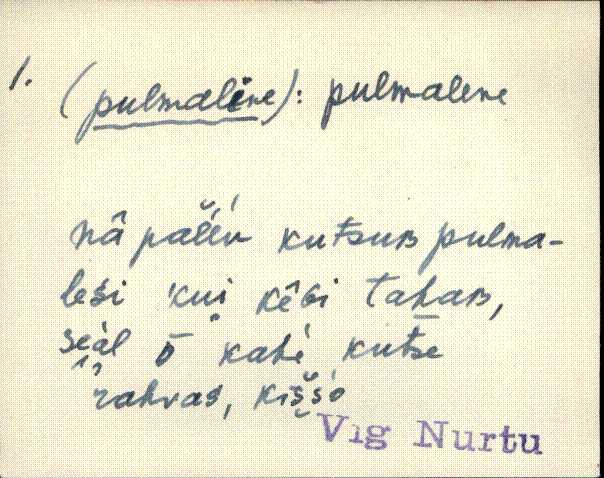 1. (pulmaline): pulmalene
nâ palĕ́v kutsuʙ pulma-
leši kui kêʙi tahaʙ,
seàl ō kahè kutse
rahvas, kiššo
Vig Nurtu